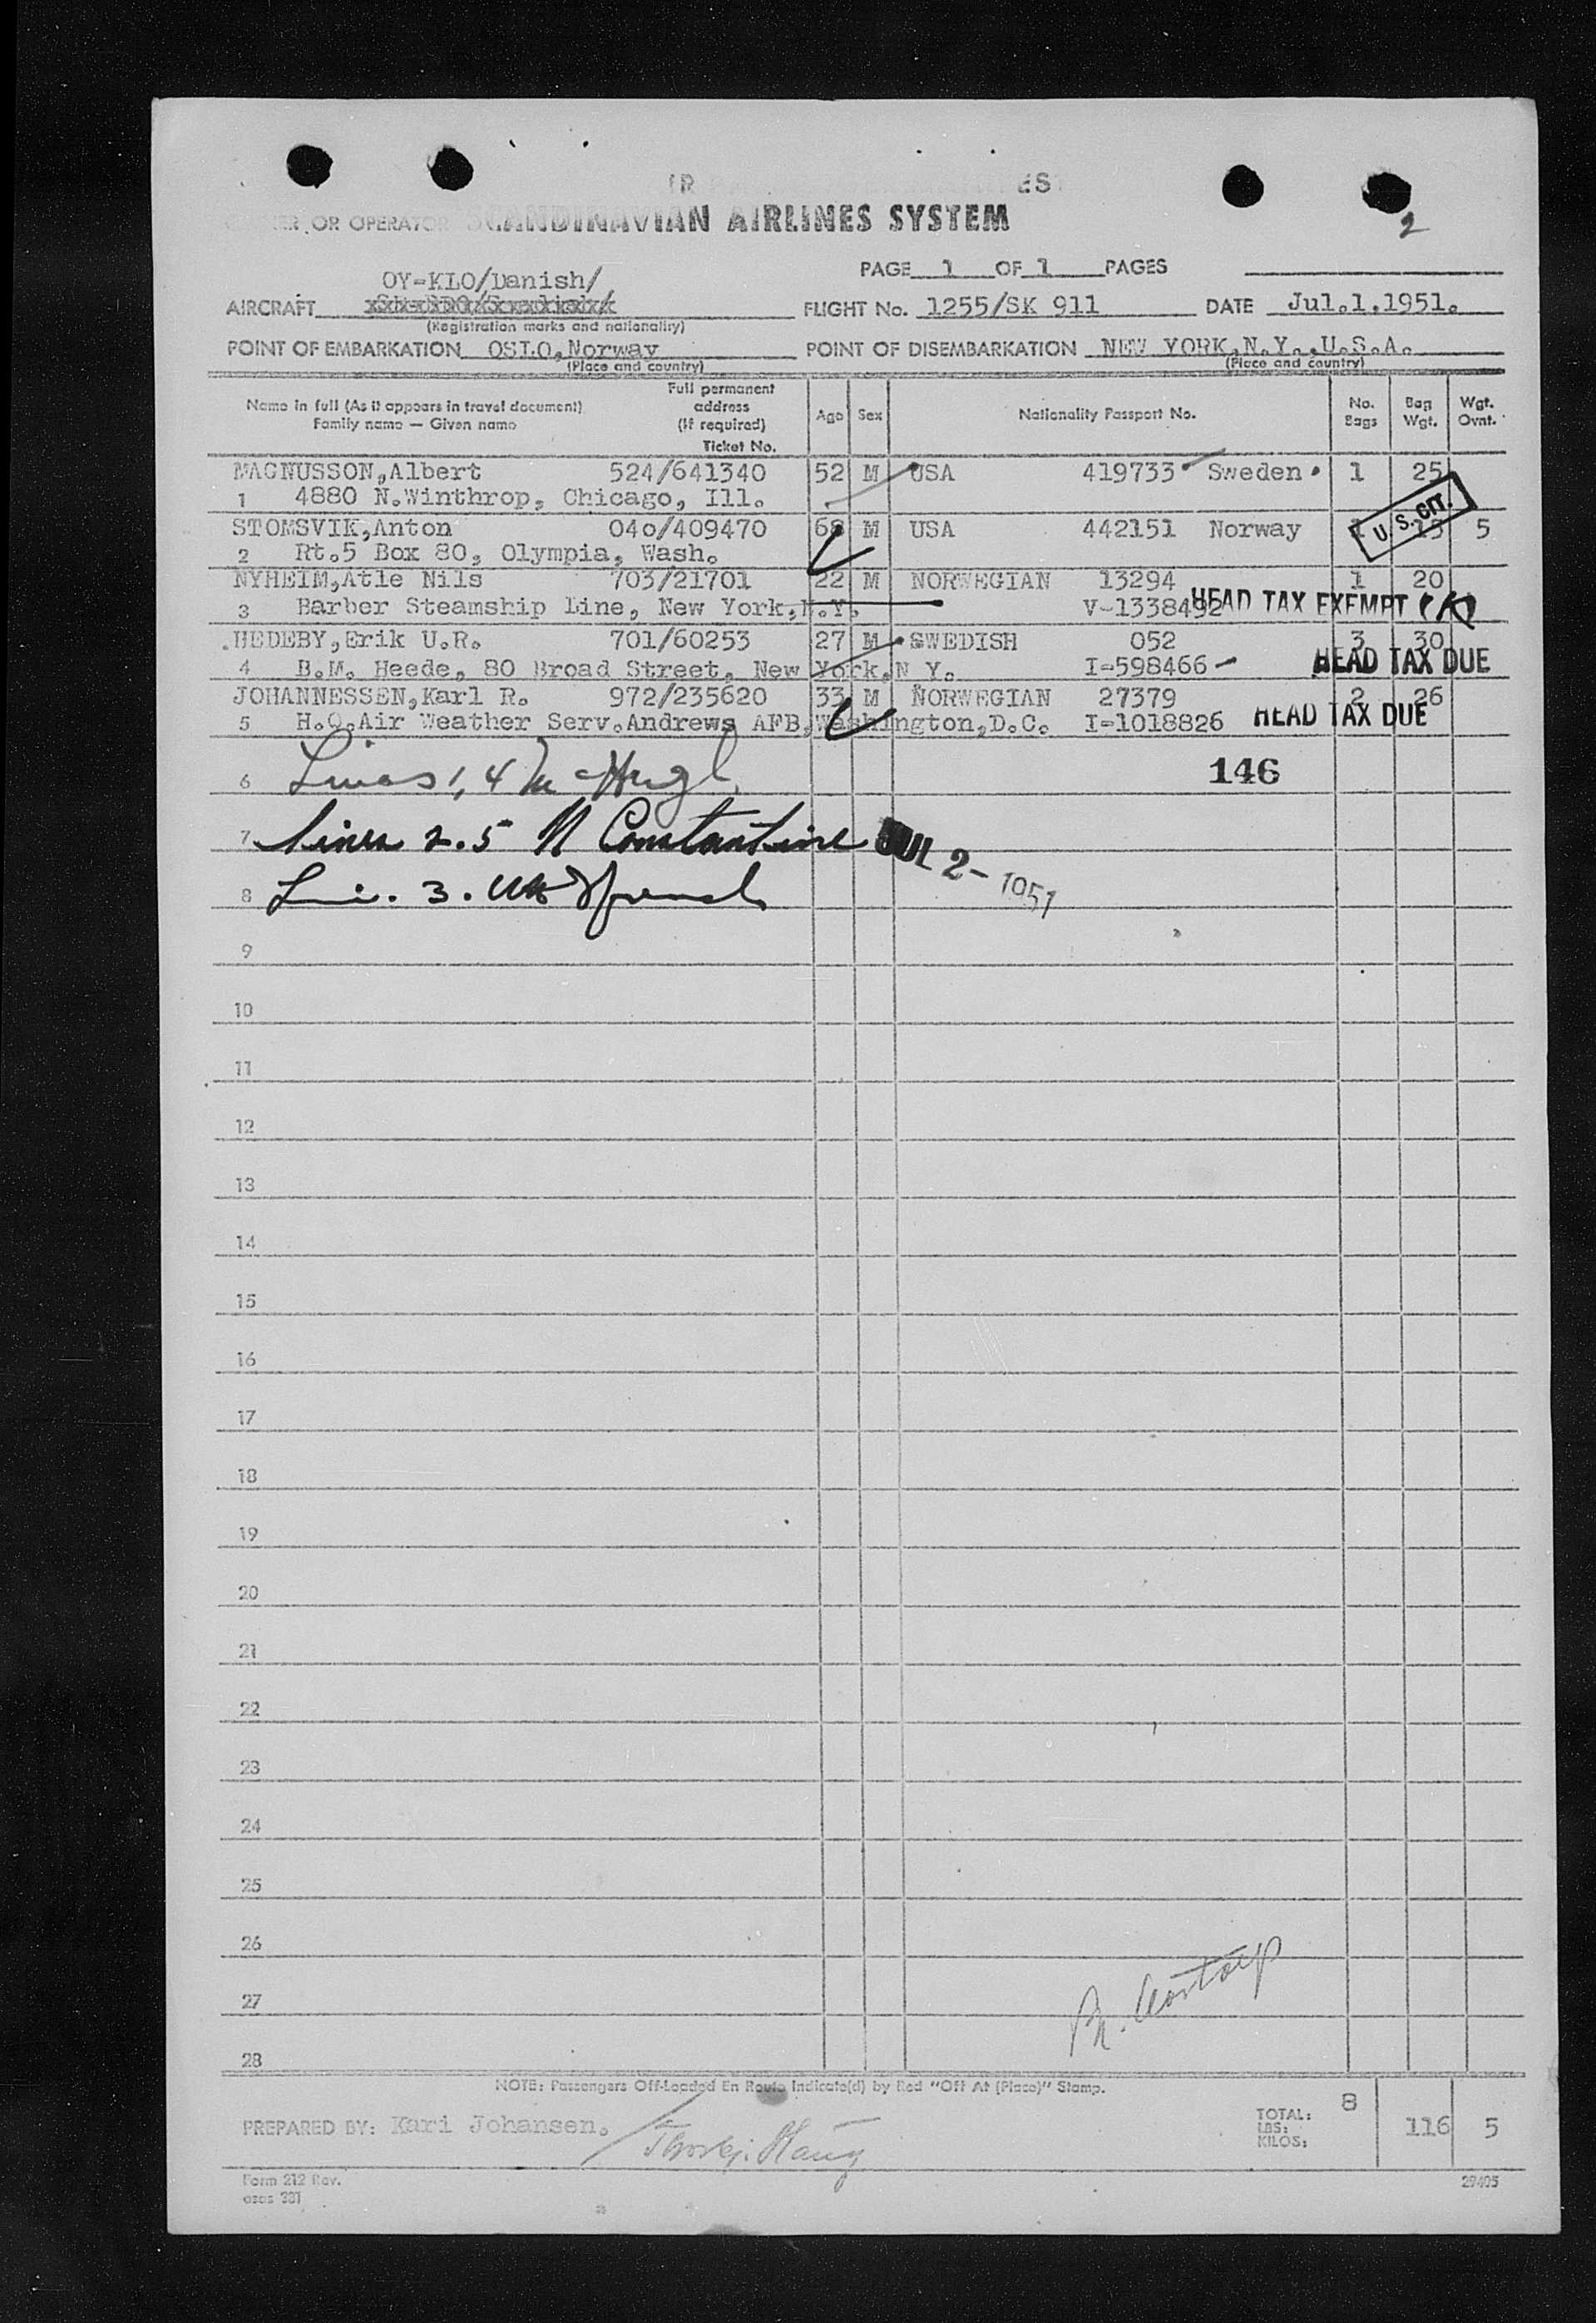 2
OR OPERATOR SCANDINAVIAN AIRLINES SYSTEM
PAGE 1 OF 1 PAGES
OY-KLO/Danish/
AIRCRAFT FLIGHT No. 1255/SK 911 DATE Jul.1.1951.
(Registration marks and nationality)
POINT OF EMBARKATION OSLO,Norway POINT OF DISEMBARKATION NEW YORK,N.Y.,U.S.A.
(Place and country) (Place and country)
Name in full (As it appears in travel document) Family name — Given name
Full permanent address (If required) Ticket No.
Age Sex Nationality Passport No. No. Bags Bag Wgt. Wgt. Ovnt.
MAGNUSSON,Albert 524/641340 52 M USA 419733 Sweden 1 25
1 4880 N.Winthrop, Chicago, Ill.
U. S. CIT.
STOMSVIK,Anton 040/409470 68 M USA 442151 Norway 1 15 5
2 Rt.5 Box 80, Olympia, Wash.
NYHEIM,Atle Nils 703/21701 22 M NORWEGIAN 13294 1 20
3 Barber Steamship Line, New York,N.Y. V-1338492 HEAD TAX EXEMPT
HEDEBY,Erik U.R. 701/60253 27 M SWEDISH 052 3 30
4 B.M. Heede, 80 Broad Street, New York,N Y. I-598466 HEAD TAX DUE
JOHANNESSEN,Karl R. 972/235620 33 M NORWEGIAN 27379 2 26
5 H.Q.Air Weather Serv.Andrews AFB,Washington,D.C. I-1018826 HEAD TAX DUE
6 Lines 1, 4 McHugh 146
7 lines 2.5 N Constantine JUL 2- 1951
8 3.
9
10
11
12
13
14
15
16
17
18
19
20
21
22
23
24
25
26
27
28
NOTE: Passengers Off-Loaded En Route Indicate(d) by Red "Off At (Place)" Stamp.
PREPARED BY: Kari Johansen.
TOTAL: 8
LBS: 116 5
KILOS:
Form 212 Rev.
osas 331
29405